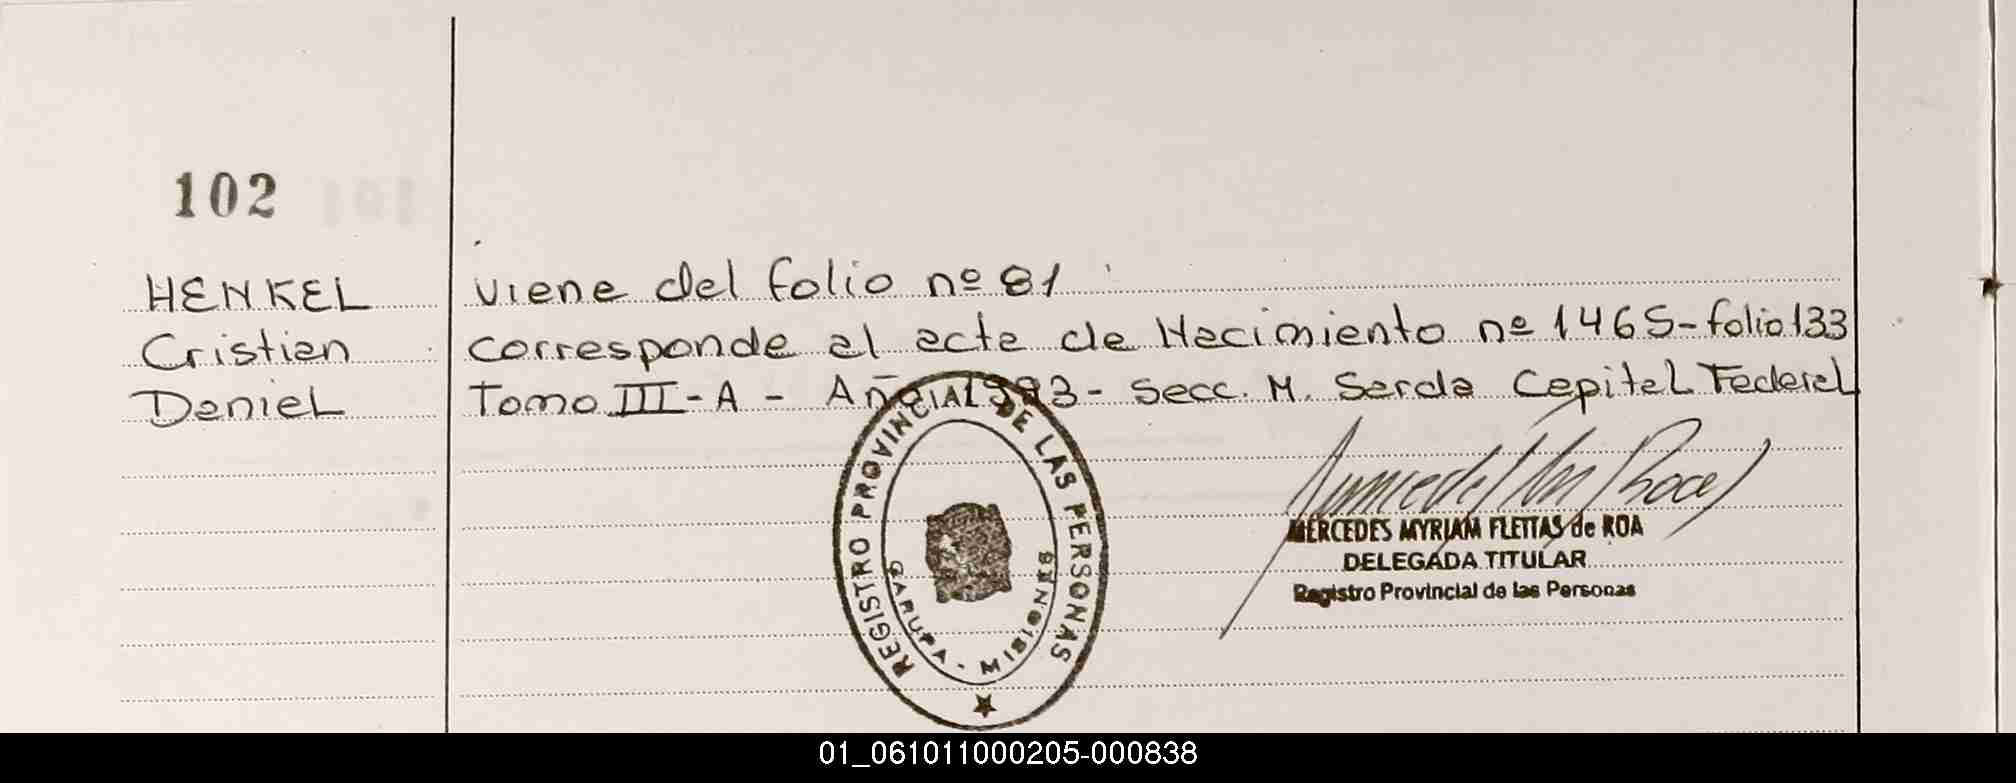 102
HENKEL
Cristian
Daniel
viene del folio nº 81
corresponde al acta de Nacimiento nº 1465-folio 133
Tomo III-A - Año 1993- Secc. M. Serda Capital Federal
REGISTRO PROVINCIAL DE LAS PERSONAS
GARUPA - MISIONES
MERCEDES MYRIAM FLEITAS de ROA
DELEGADA TITULAR
Registro Provincial de las Personas
01_061011000205-000838